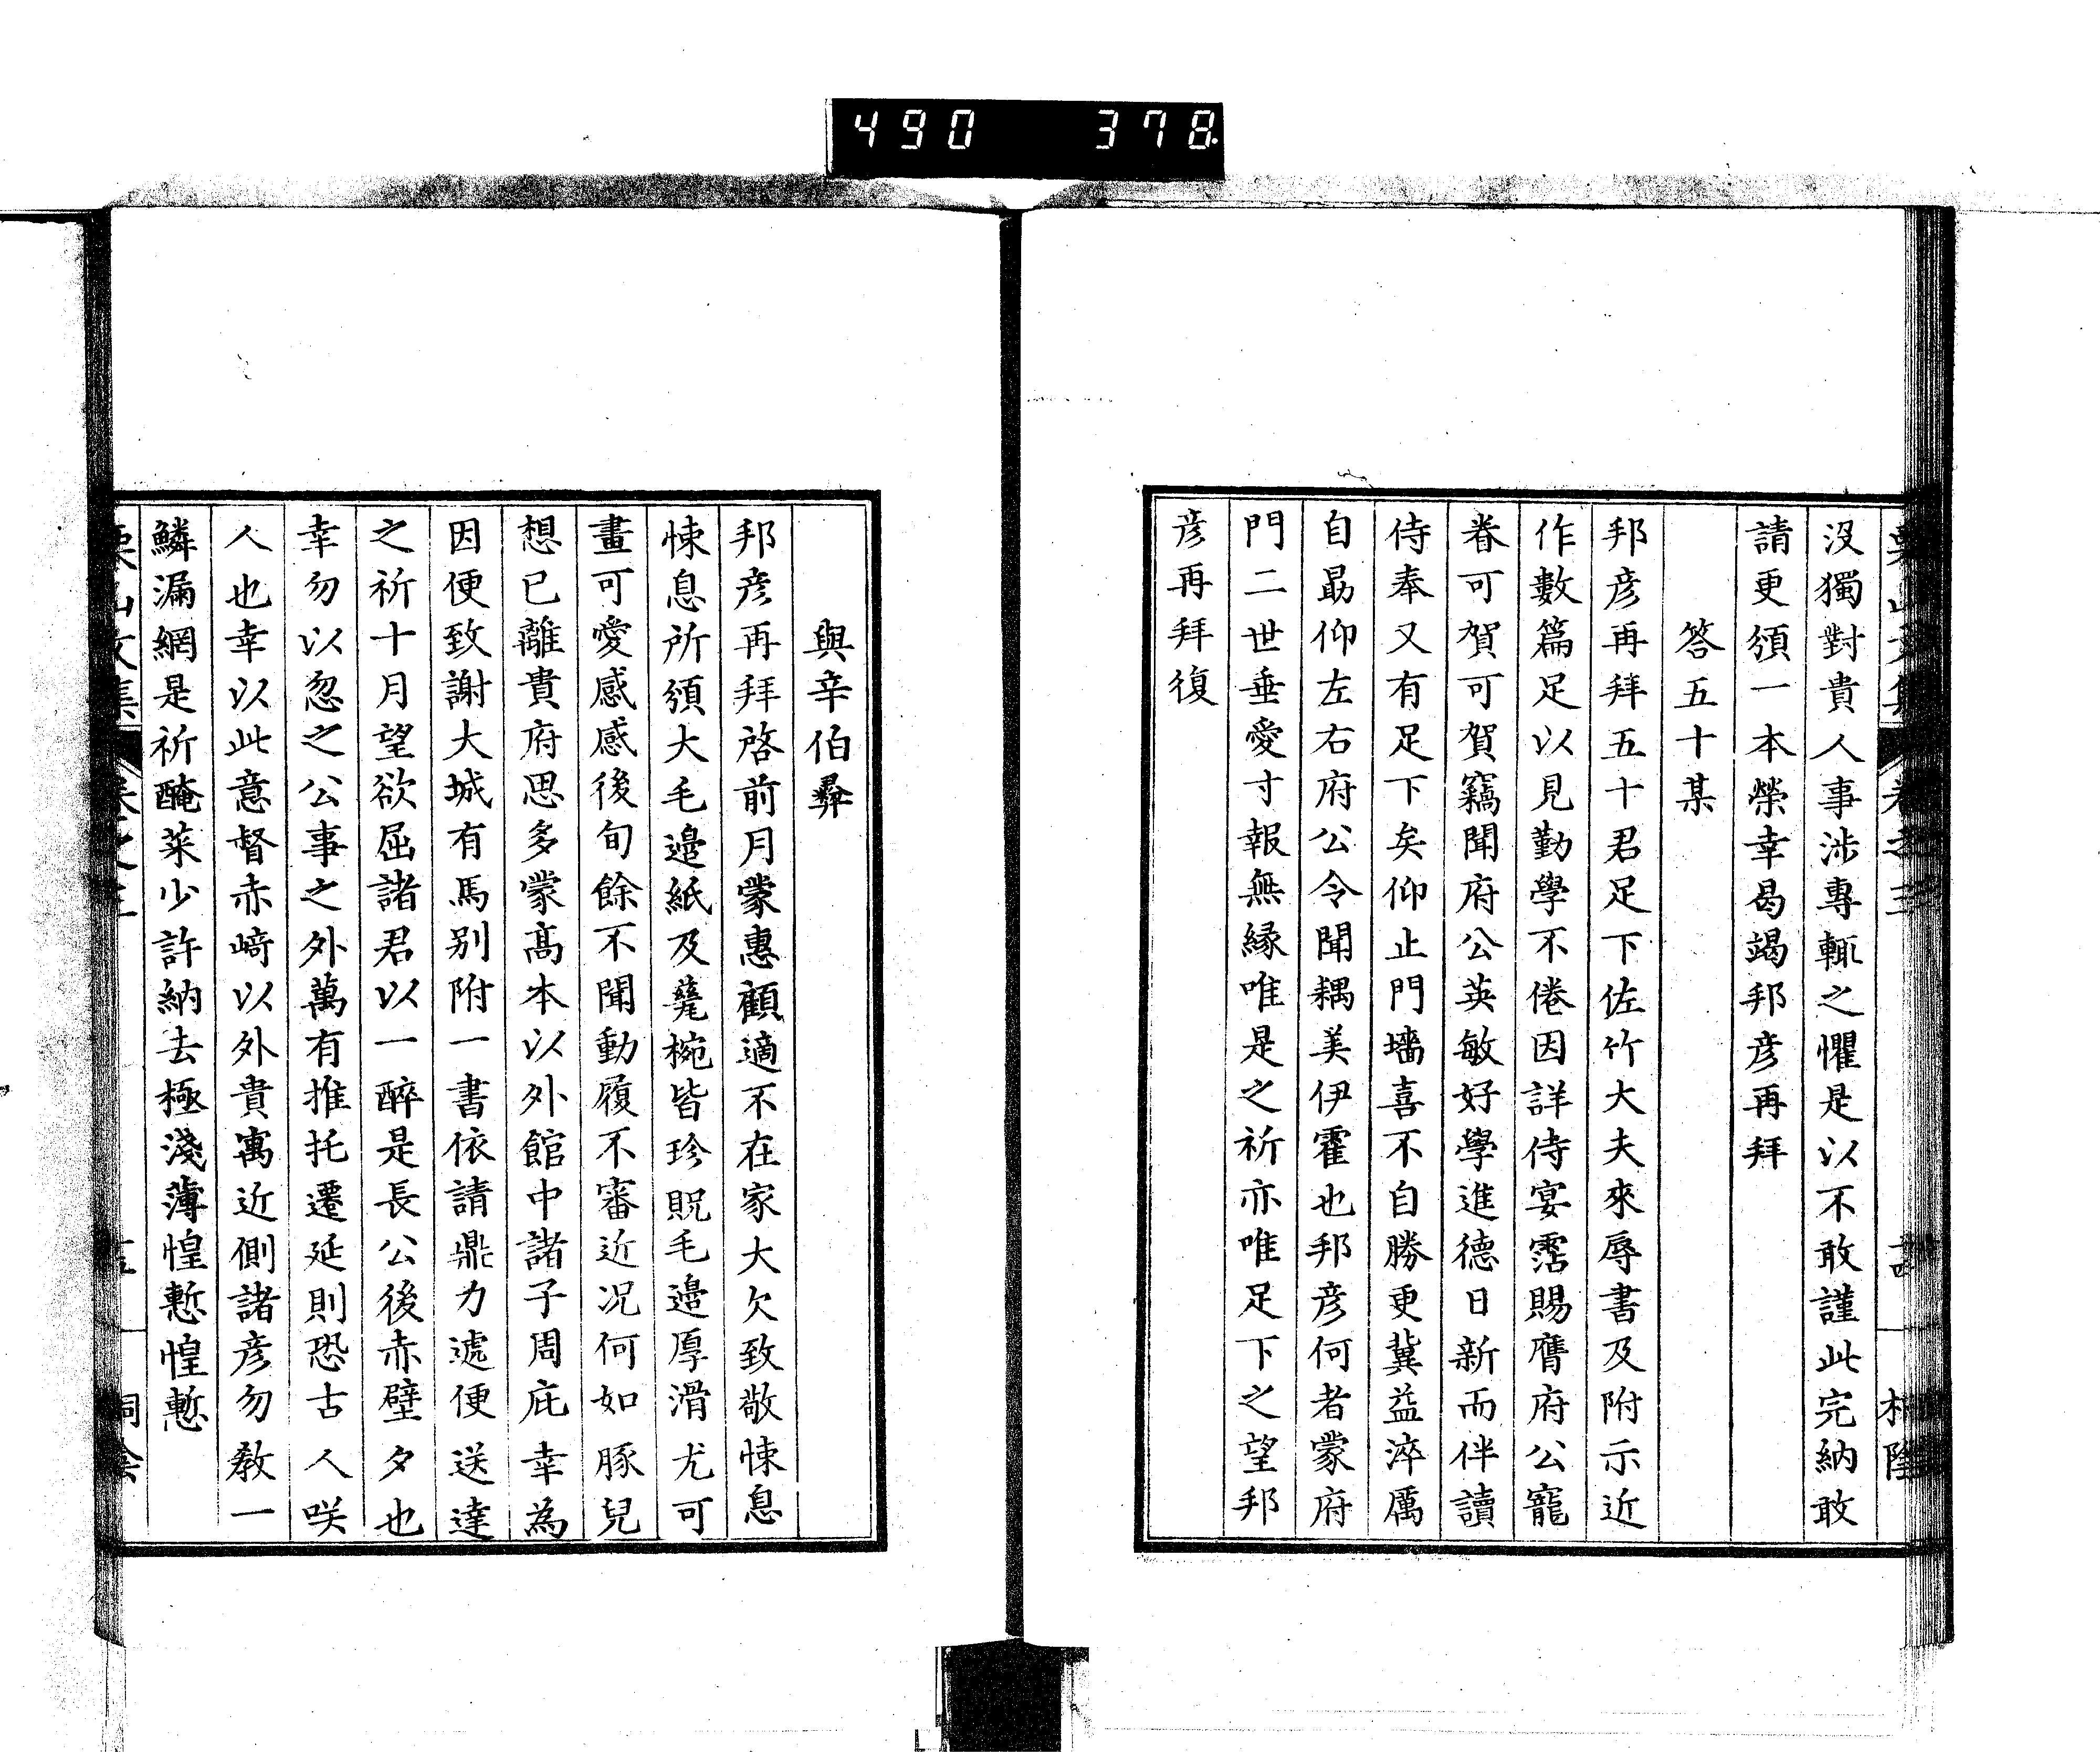 490 378
沒獨對貴人事涉專輒之懼是以不敢謹此完納敢
請更須一本榮幸曷竭邦彥再拜
答五十某
邦彥再拜五十君足下佐竹大夫來辱書及附示近
作數篇足以見勤學不倦因詳侍宴霑賜膺府公寵
眷可賀可賀竊聞府公英敏好學進德日新而伴讀
侍奉又有足下矣仰止門墻喜不自勝更冀益淬厲
自勗仰左右府公令聞耦美伊霍也邦彥何者蒙府
門二世垂愛寸報無緣唯是之祈亦唯足下之望邦
彥再拜復
與辛伯彜
邦彥再拜啓前月蒙惠顧適不在家大欠致敬悚息
悚息所須大毛邉紙及甆椀皆珍貺毛邉厚滑尤可
畫可愛感感後旬餘不聞動履不審近况何如豚兒
想已離貴府思多蒙髙本以外館中諸子周庇幸為
因便致謝大城有馬别附一書依請鼎力遞便送達
之祈十月望欲屈諸君以一醉是長公後赤壁夕也
幸勿以忽之公事之外萬有推托遷延則恐古人咲
人也幸以此意督赤﨑以外貴寓近側諸彥勿教一
鱗漏網是祈醃菜少許納去極淺薄惶慙惶慙